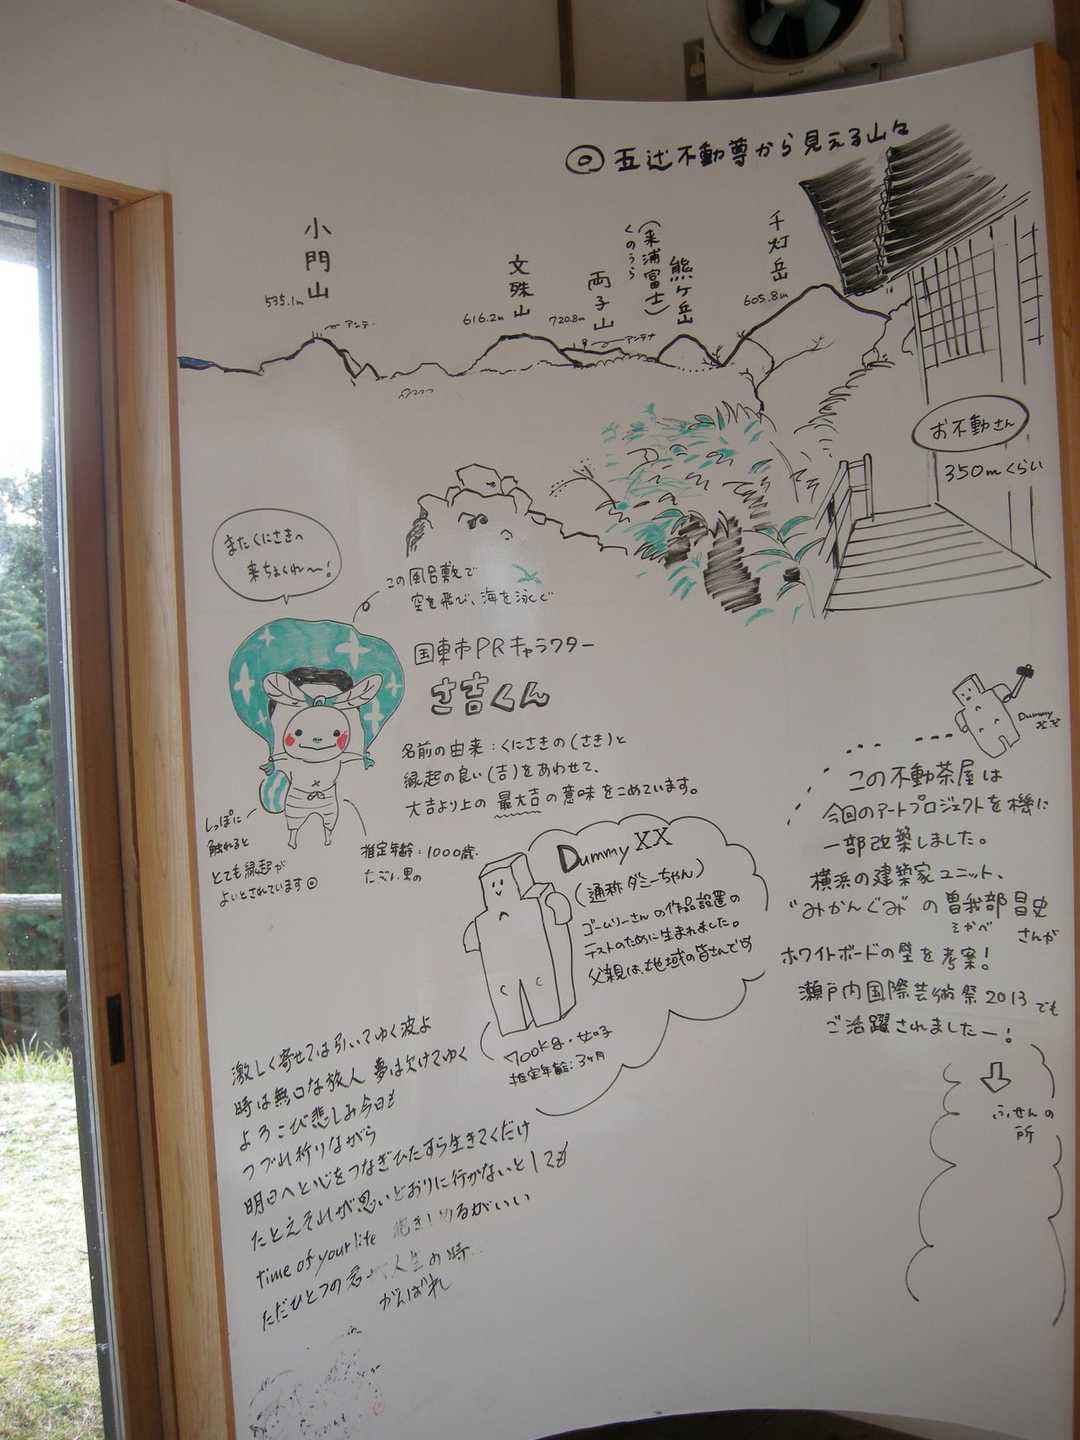 ◎五辻不動尊から見える山々
小門山
535.1m
アンテ
文殊山
616.2m
両子山
720.8m
アンテナ
(来浦富士)
くのうら
熊ヶ岳
千灯岳
605.8m
お不動さん
350mくらい
またくにさきへ
来ちょくれ〜!
この風呂敷で
空を飛び、海を泳ぐ
国東市PRキャラクター
さ吉くん
名前の由来:くにさきの(さき)と
縁起の良い(吉)をあわせて、
大吉より上の最大吉の意味をこめています。
しっぽに
触れると
とても縁起が
よいとされています◎
推定年齢:1000歳.
Dummy XX
(通称ダミーちゃん)
ゴームリーさんの作品設置の
テストのために生まれました。
父親は、地域の皆さんです
700kg・女の子
推定年齢:3ヶ月
Dummy
XX
この不動茶屋は
今回のアートプロジェクトを機に
一部改築しました。
横浜の建築家ユニット、
"みかんぐみ"の曽我部昌史
そがべ
さんが
ホワイトボードの壁を考案!
瀬戸内国際芸術祭2013でも
ご活躍されましたー!
ふせんの
所
激しく寄せては引いてゆく波よ
時は無口な旅人 夢は欠けてゆく
よろこび悲しみ今日も
つづれ折りながら
明日へと心をつなぎひたすら生きてくだけ
たとえそれが思いどおりに行かないとしても
time of your life 抱きしめるがいい
ただひとつの君の人生の時...
がんばれ